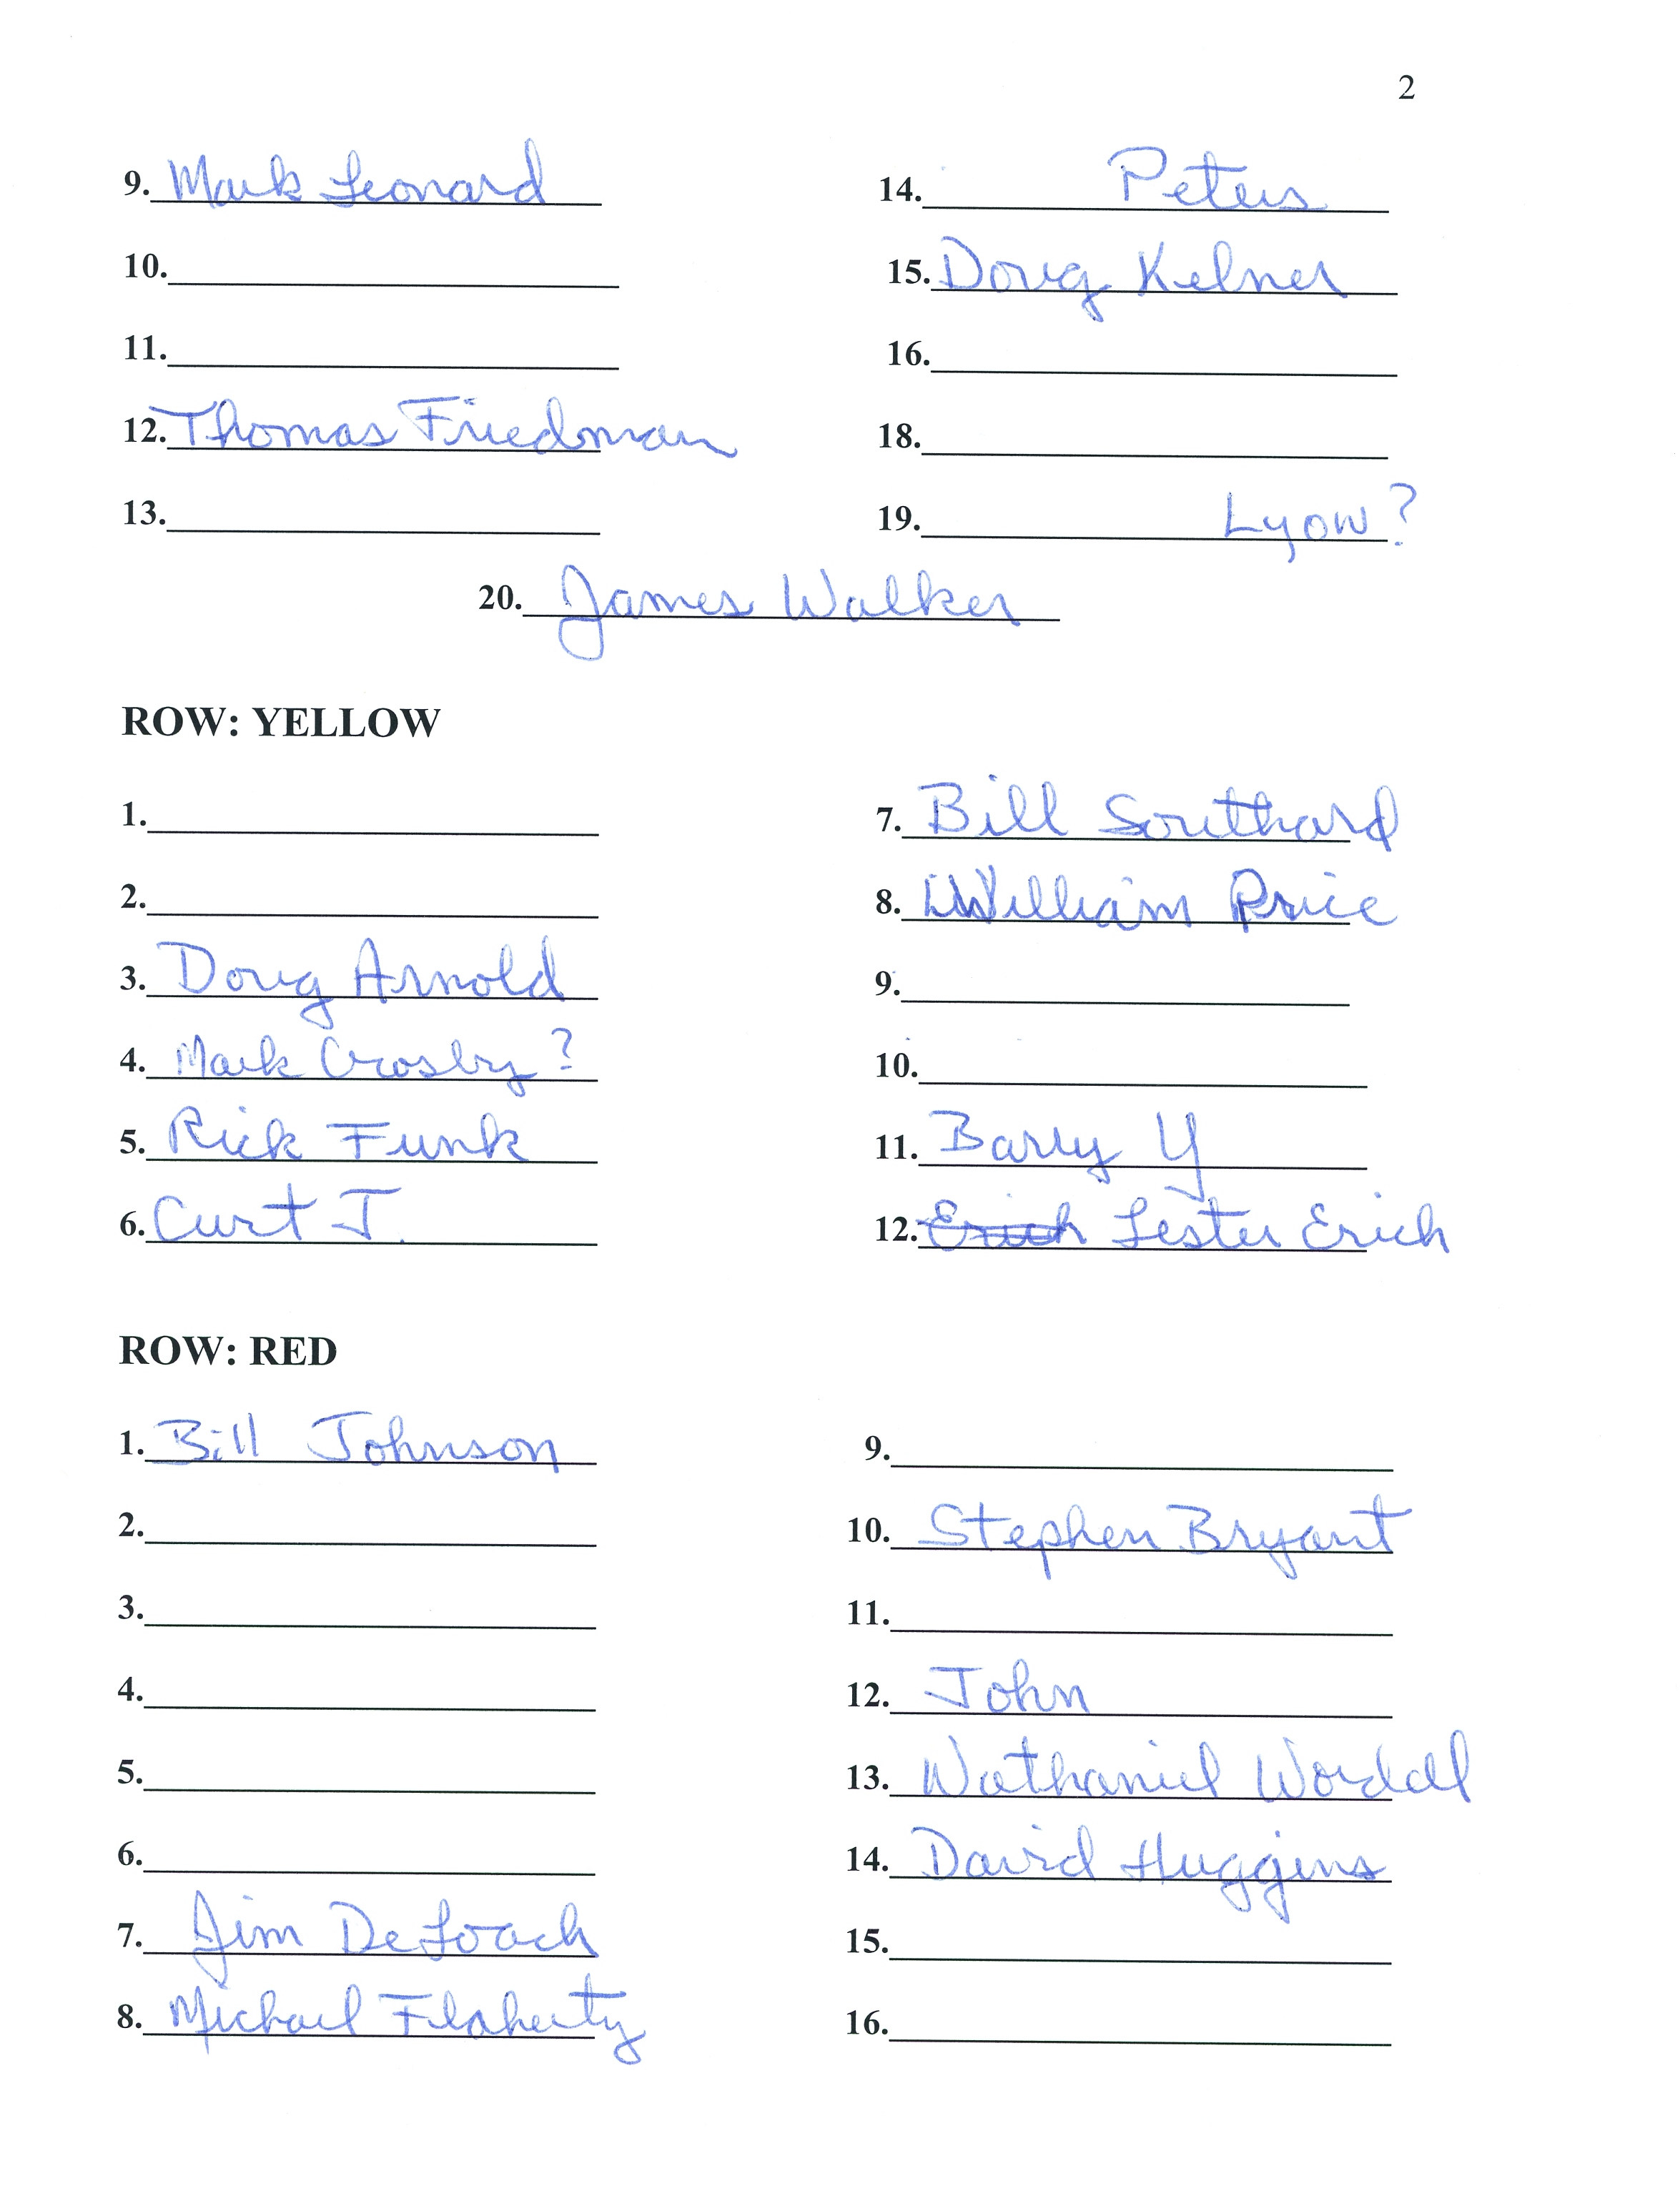 2
9. Mark Leonard
10.
11.
12. Thomas Friedman
13.
14. Peters
15. Doug Kelner
16.
18.
19. Lyow?
20. James Walker
ROW: YELLOW
1.
2.
3. Doug Arnold
4. Mark Crosby?
5. Rick Funk
6. Curt J.
7. Bill Southard
8. William Price
9.
10.
11. Barry Y
12. Erich Lester Erich
ROW: RED
1. Bill Johnson
2.
3.
4.
5.
6.
7. Jim DeLoach
8. Michael Flaherty
9.
10. Stephen Bryant
11.
12. John
13.
14. David Huggins
15.
16.